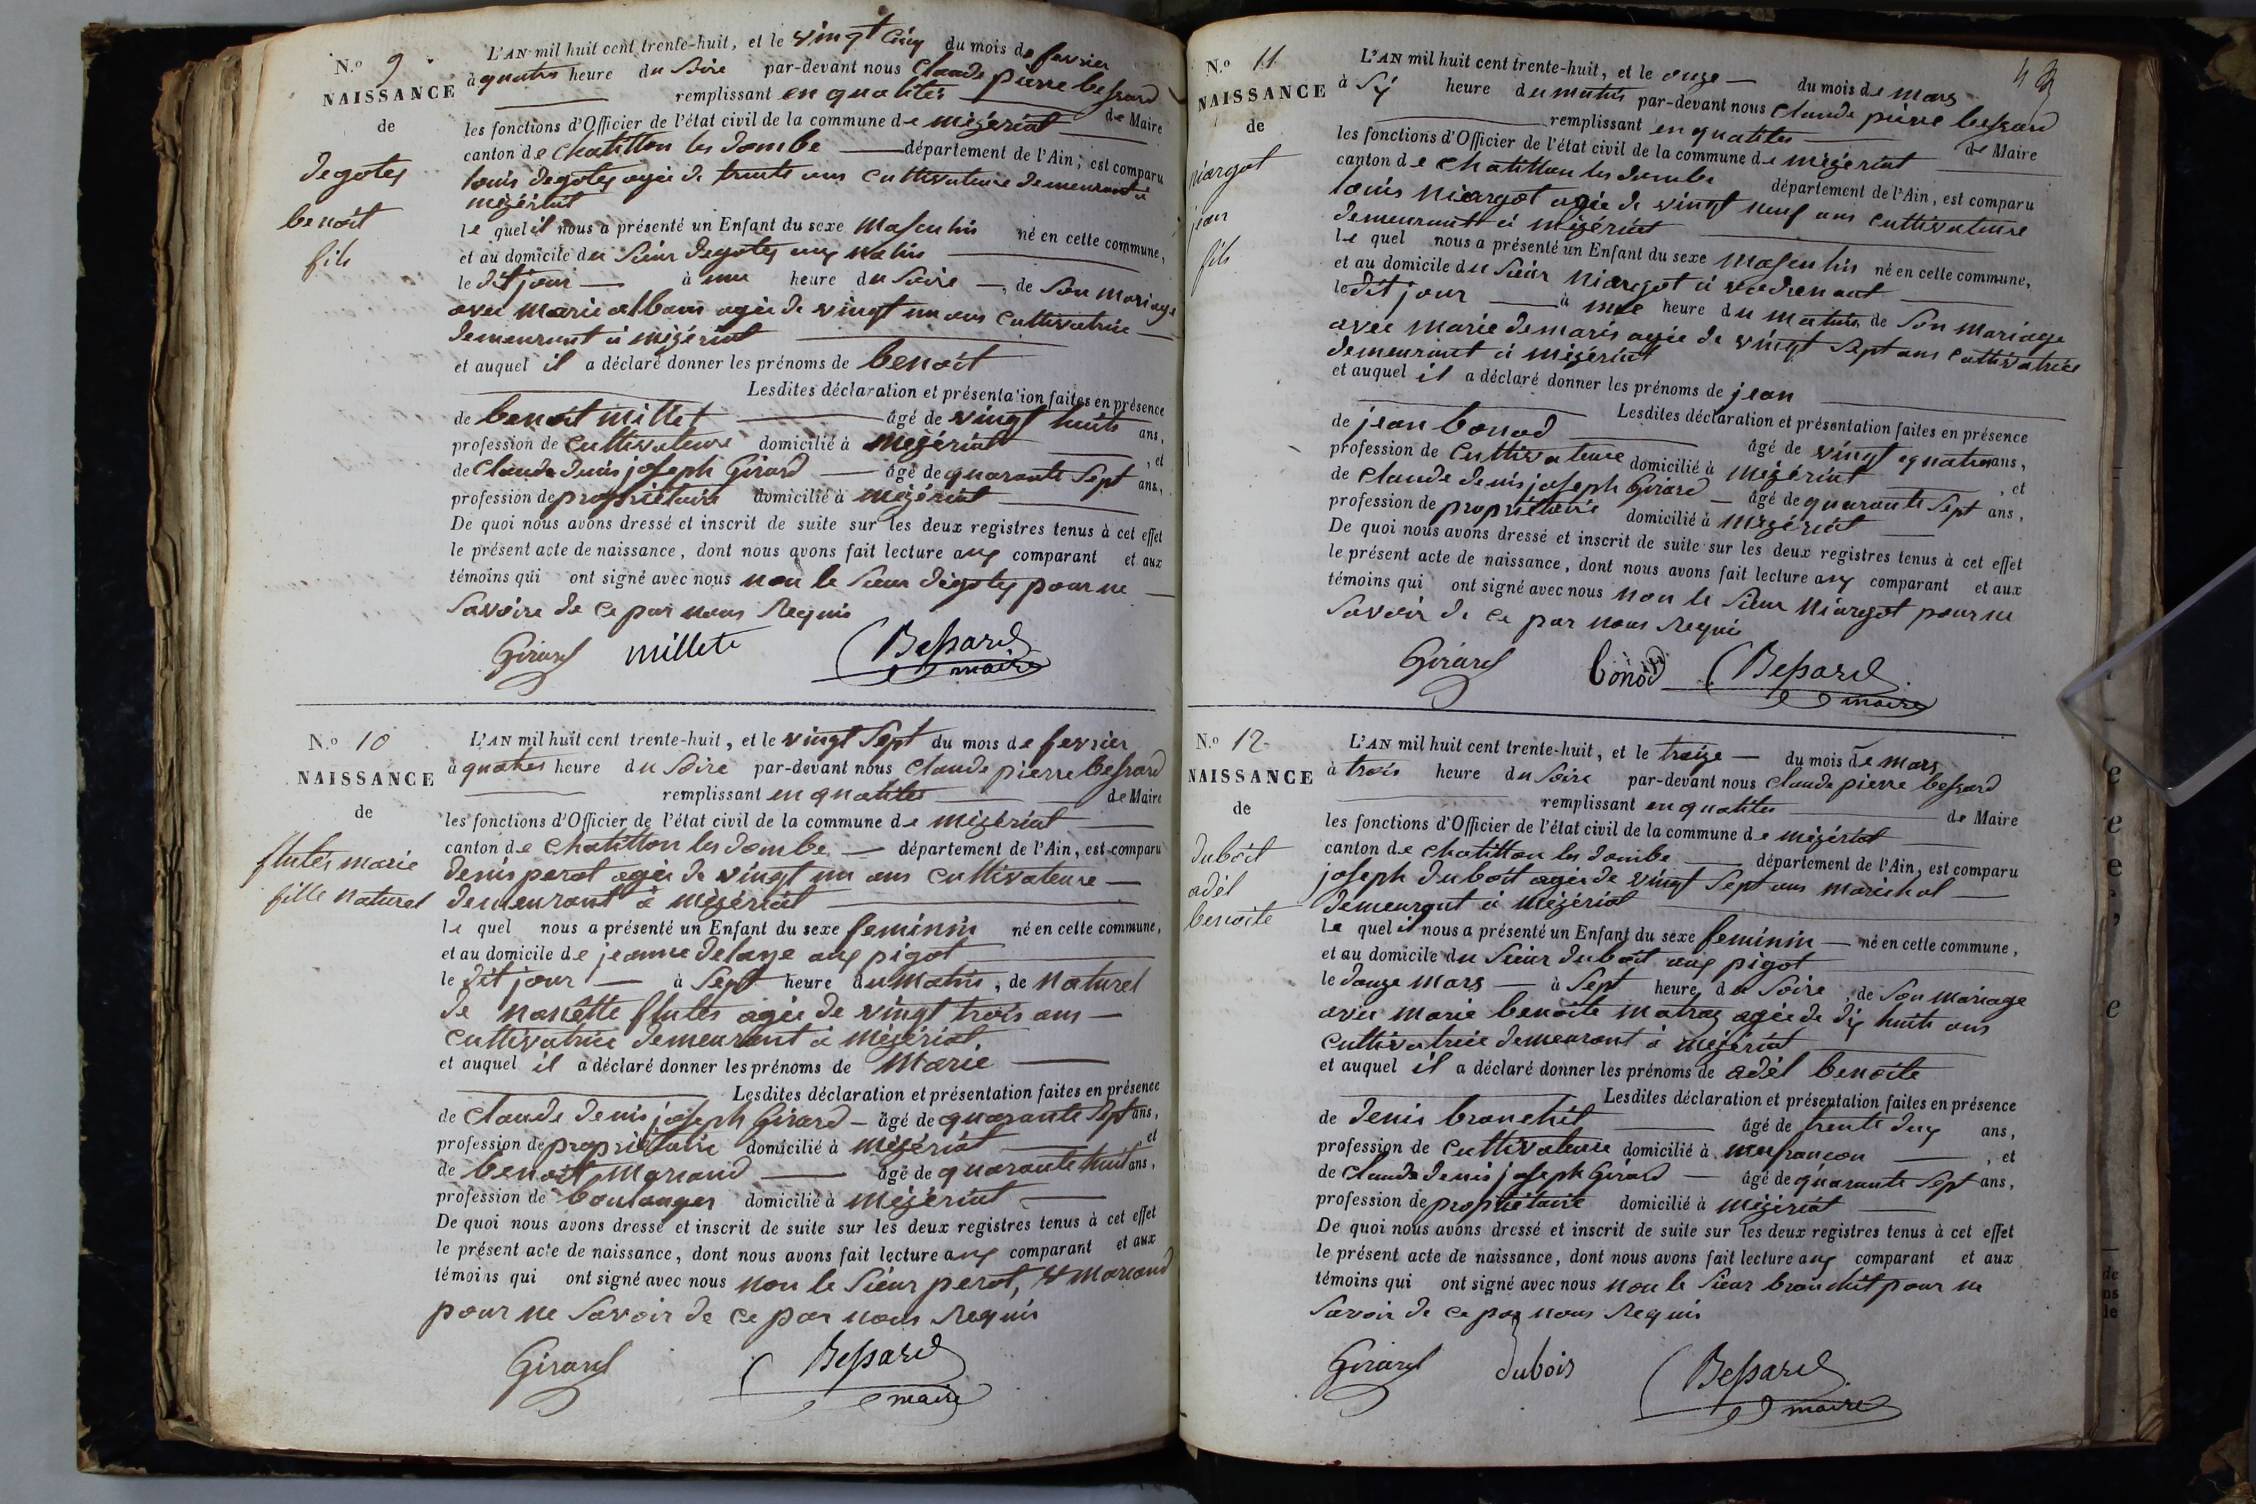 N.o 9
NAISSANCE
de
degotey
benoit
fils
L'AN mil huit cent trente-huit, et le vingt cinq du mois de fevrier
à quatre heure du soire par-devant nous claude pierre bessard
remplissant en qualités de Maire
les fonctions d'Officier de l'état civil de la commune de mézériat
canton de chatillon les dombe département de l'Ain, est comparu
louis degotey agée de trente ans cultivateure demeurant à
mézériat
le quel il nous a présenté un Enfant du sexe masculin né en cette commune,
et au domicile du sieur degotey aux
le dit jour à une heure du soire, de son mariage
avec marie alban agée de vingt un ans cultivatrice
demeurant à mézériat
et auquel il a déclaré donner les prénoms de benoit
Lesdites déclaration et présentation faites en présence
de benoit millet âgé de vingt huits ans,
profession de cultivateure domicilié à mézériat, et
de claude denis joseph Girard âgé de quarante sept ans,
profession de propriétaire domicilié à mézériat
De quoi nous avons dressé et inscrit de suite sur les deux registres tenus à cet effet
le présent acte de naissance, dont nous avons fait lecture aux comparant et aux
témoins qui ont signé avec nous non le sieur degotey pour ne
savoire de ce par nous requis
Girard millet Bessard
maire
N.o 10
NAISSANCE
de
flutes marie
fille naturel
L'AN mil huit cent trente-huit, et le vingt sept du mois de fevrier
à quatres heure du soire par-devant nous claude pierre bessard
remplissant en qualités de Maire
les fonctions d'Officier de l'état civil de la commune de mézériat
canton de chatillon les dombe département de l'Ain, est comparu
denis perot agée de vingt un ans cultivateure
demeurant à mézériat
le quel nous a présenté un Enfant du sexe feminin né en cette commune,
et au domicile de jeanne delaye aux pigot
le dit jour à sept heure du matin, de naturel
de nanette flutes agée de vingt trois ans
cultivatrice demeurant à mézériat
et auquel il a déclaré donner les prénoms de marie
Lesdites déclaration et présentation faites en présence
de claude denis joseph Girard âgé de quarante sept ans,
profession de propriétaire domicilié à mézériat et
de benoit moriand âgé de quarante huit ans,
profession de boulanger domicilié à mézériat
De quoi nous avons dressé et inscrit de suite sur les deux registres tenus à cet effet
le présent acte de naissance, dont nous avons fait lecture aux comparant et aux
témoins qui ont signé avec nous non le sieur perot, et moriand
pour ne savoir de ce par nous requis
Girard Bessard
maire
N.o 11
NAISSANCE
de
niargot
jean
fils
L'AN mil huit cent trente-huit, et le onze du mois de mars
à six heure du matin par-devant nous claude pierre bessard
remplissant en qualités de Maire
les fonctions d'Officier de l'état civil de la commune de mézériat
canton de chatillon les dombe département de l'Ain, est comparu
louis niargot agée de vingt neuf ans cultivateure
demeurant à mézériat
le quel nous a présenté un Enfant du sexe masculin né en cette commune,
et au domicile du sieur niargot à vaudrenant
le dit jour à une heure du matin de son mariage
avec marie demaris agée de vingt sept ans cultivatrice
demeurant à mézériat
et auquel il a déclaré donner les prénoms de jean
Lesdites déclaration et présentation faites en présence
de jean bonod âgé de vingt quatre ans,
profession de cultivateure domicilié à mézériat, et
de claude denis joseph Girard âgé de quarante sept ans,
profession de propriétaire domicilié à mézériat
De quoi nous avons dressé et inscrit de suite sur les deux registres tenus à cet effet
le présent acte de naissance, dont nous avons fait lecture aux comparant et aux
témoins qui ont signé avec nous non le sieur niargot pour ne
savoir de ce par nous requis
Girard bonod Bessard
maire
N.o 12
NAISSANCE
de
duboit
adèl
benoite
L'AN mil huit cent trente-huit, et le treize du mois de mars
à trois heure du soire par-devant nous claude pierre bessard
remplissant en qualités de Maire
les fonctions d'Officier de l'état civil de la commune de mézériat
canton de chatillon les dombe département de l'Ain, est comparu
joseph duboit agée de vingt sept ans marichal
demeurant à mézériat
le quel il nous a présenté un Enfant du sexe feminin né en cette commune,
et au domicile du sieur duboit aux pigot
le douze mars à sept heure du soire, de son mariage
avec marie benoite matray agée de dix huits ans
cultivatrice demeurant à mézériat
et auquel il a déclaré donner les prénoms de adèl benoite
Lesdites déclaration et présentation faites en présence
de denis branchit âgé de trente deux ans,
profession de cultivateure domicilié à, et
de claude denis joseph Girard âgé de quarante sept ans,
profession de propriétaire domicilié à mézériat
De quoi nous avons dressé et inscrit de suite sur les deux registres tenus à cet effet
le présent acte de naissance, dont nous avons fait lecture aux comparant et aux
témoins qui ont signé avec nous non le sieur branchit pour ne
savoir de ce par nous requis
Girard dubois Bessard
maire